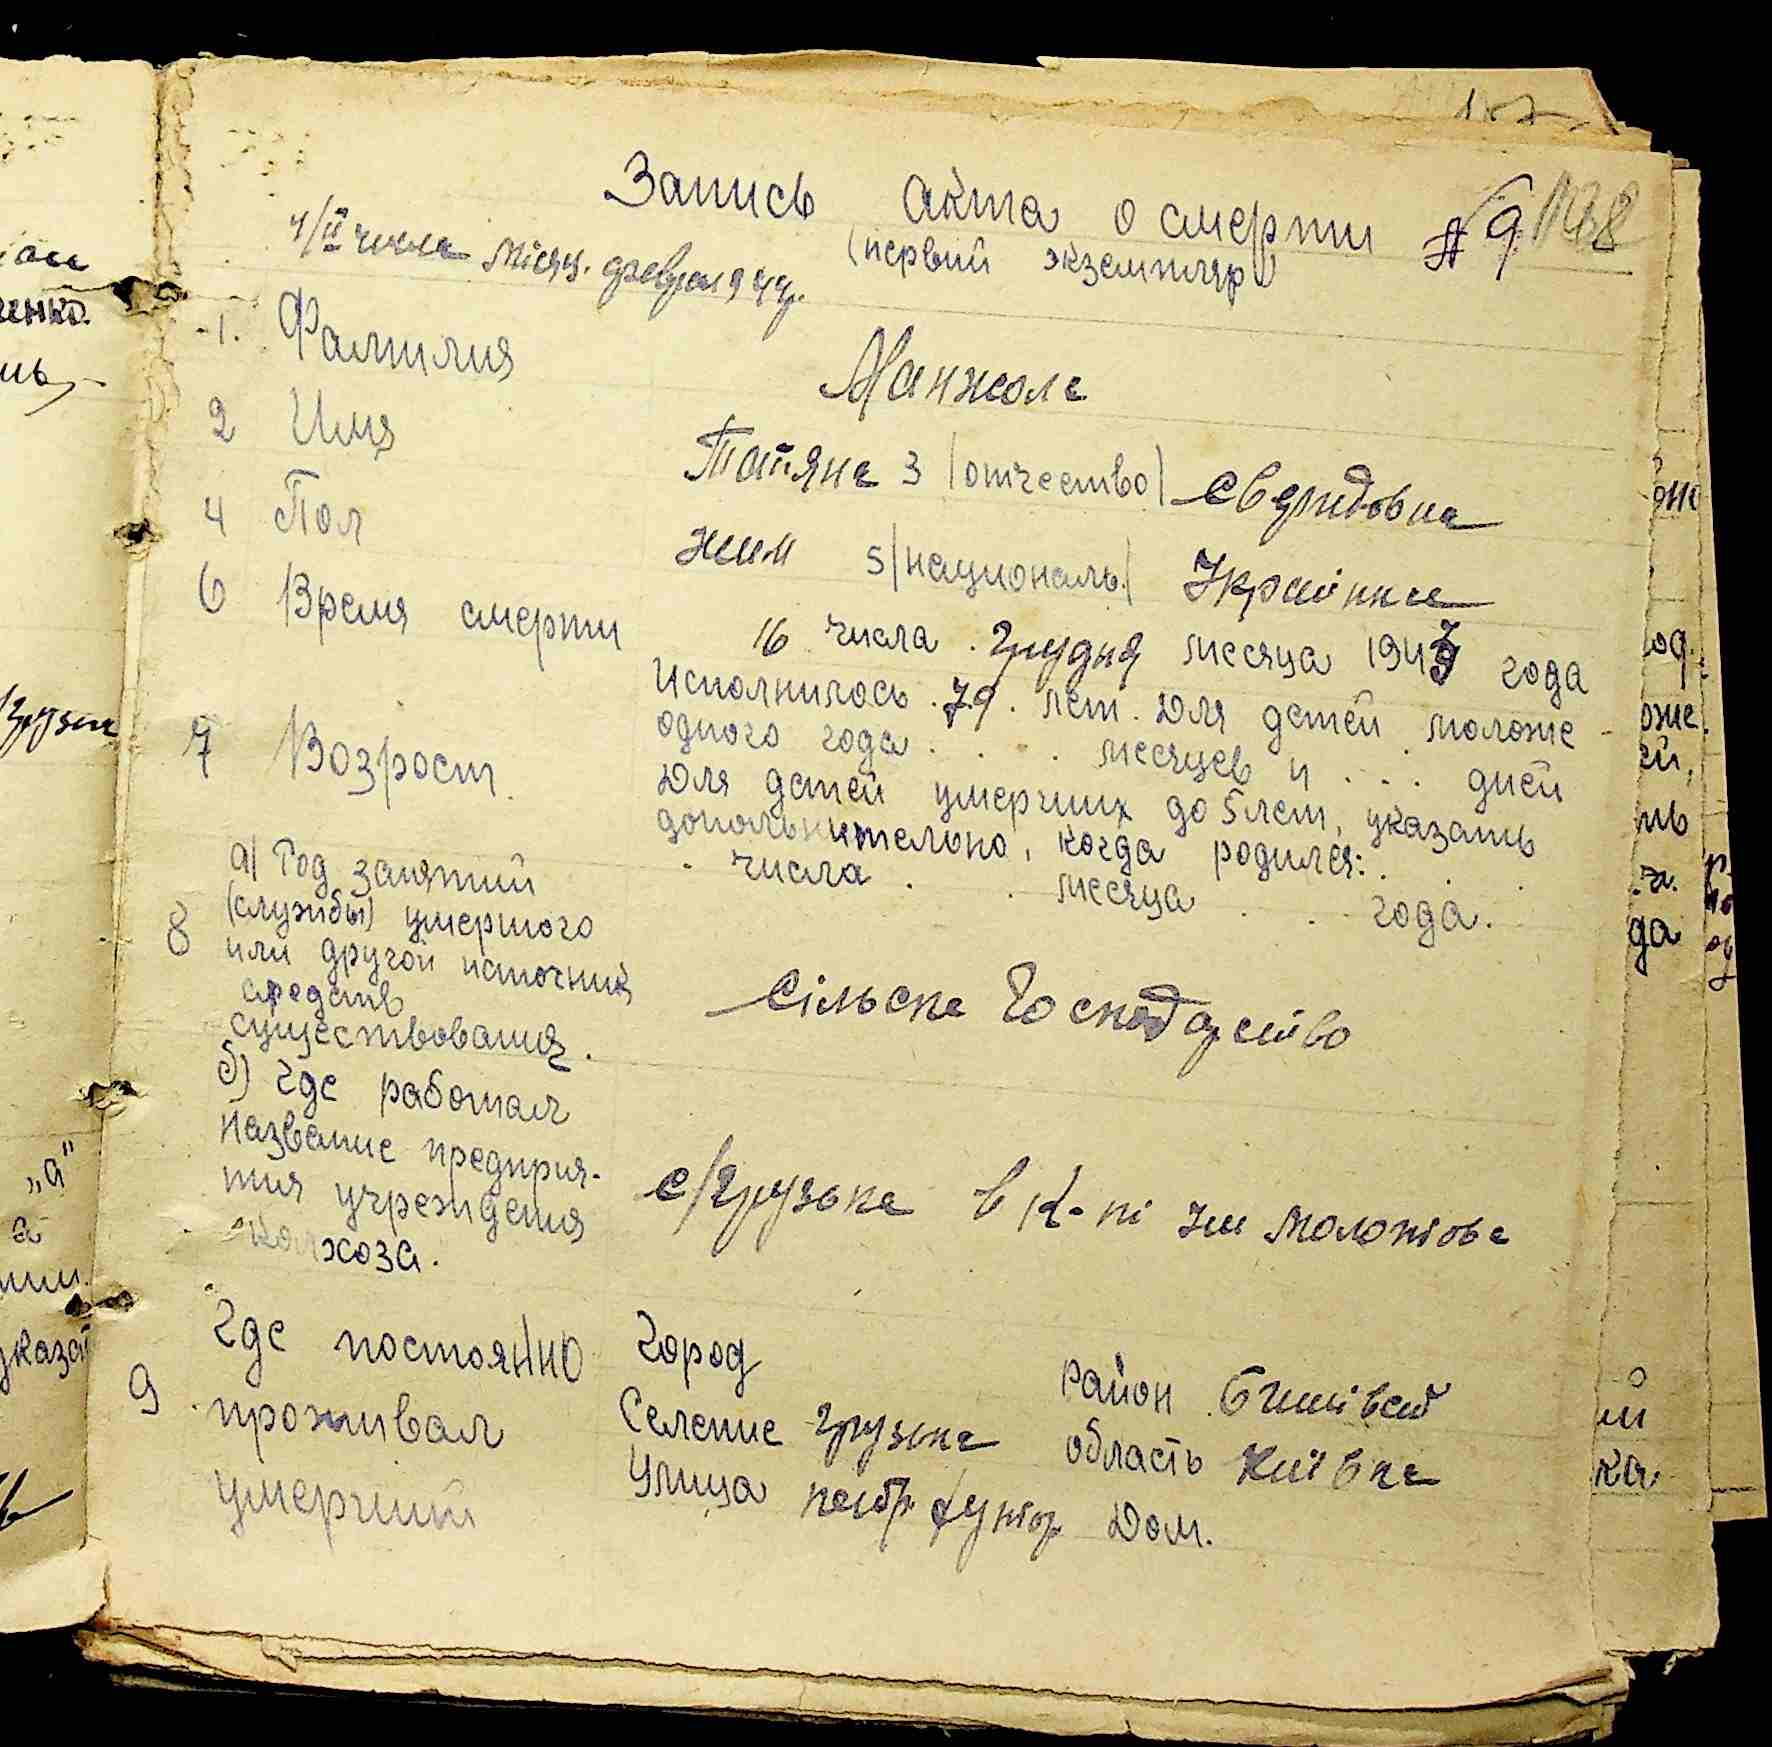 Запись акта о смерти № 9
(первий экземпляр)
4/II числа місяц. феврал 944р.
1. Фамилия Манжола
2 Имя Татяна 3 /отчество/ Свиридовна
4 Пол жин 5/националь/ Украінка
6 Время смерти 16 числа Грудня месяца 1943 года
7 Возрост Исполнилось 79 лет. Для детей моложе
одного года . . . месяцев и . . . дней
Для детей умерших до 5 лет, указать
допольнительно, когда родился: . .
. числа . . месяца . . года.
8 а) Род занятий
(службы) умершого
или другой источник
средств
существования.
Сільске Господарство
б) Где работал
название предприя-
тия учреждения
колхоза.
с/Грузьке в К-пі їм Молотова
9 Где постоянно
проживал
умерший
Город район Бишівськ
Селение Грузьке область Київска
Улица хутор Дом.